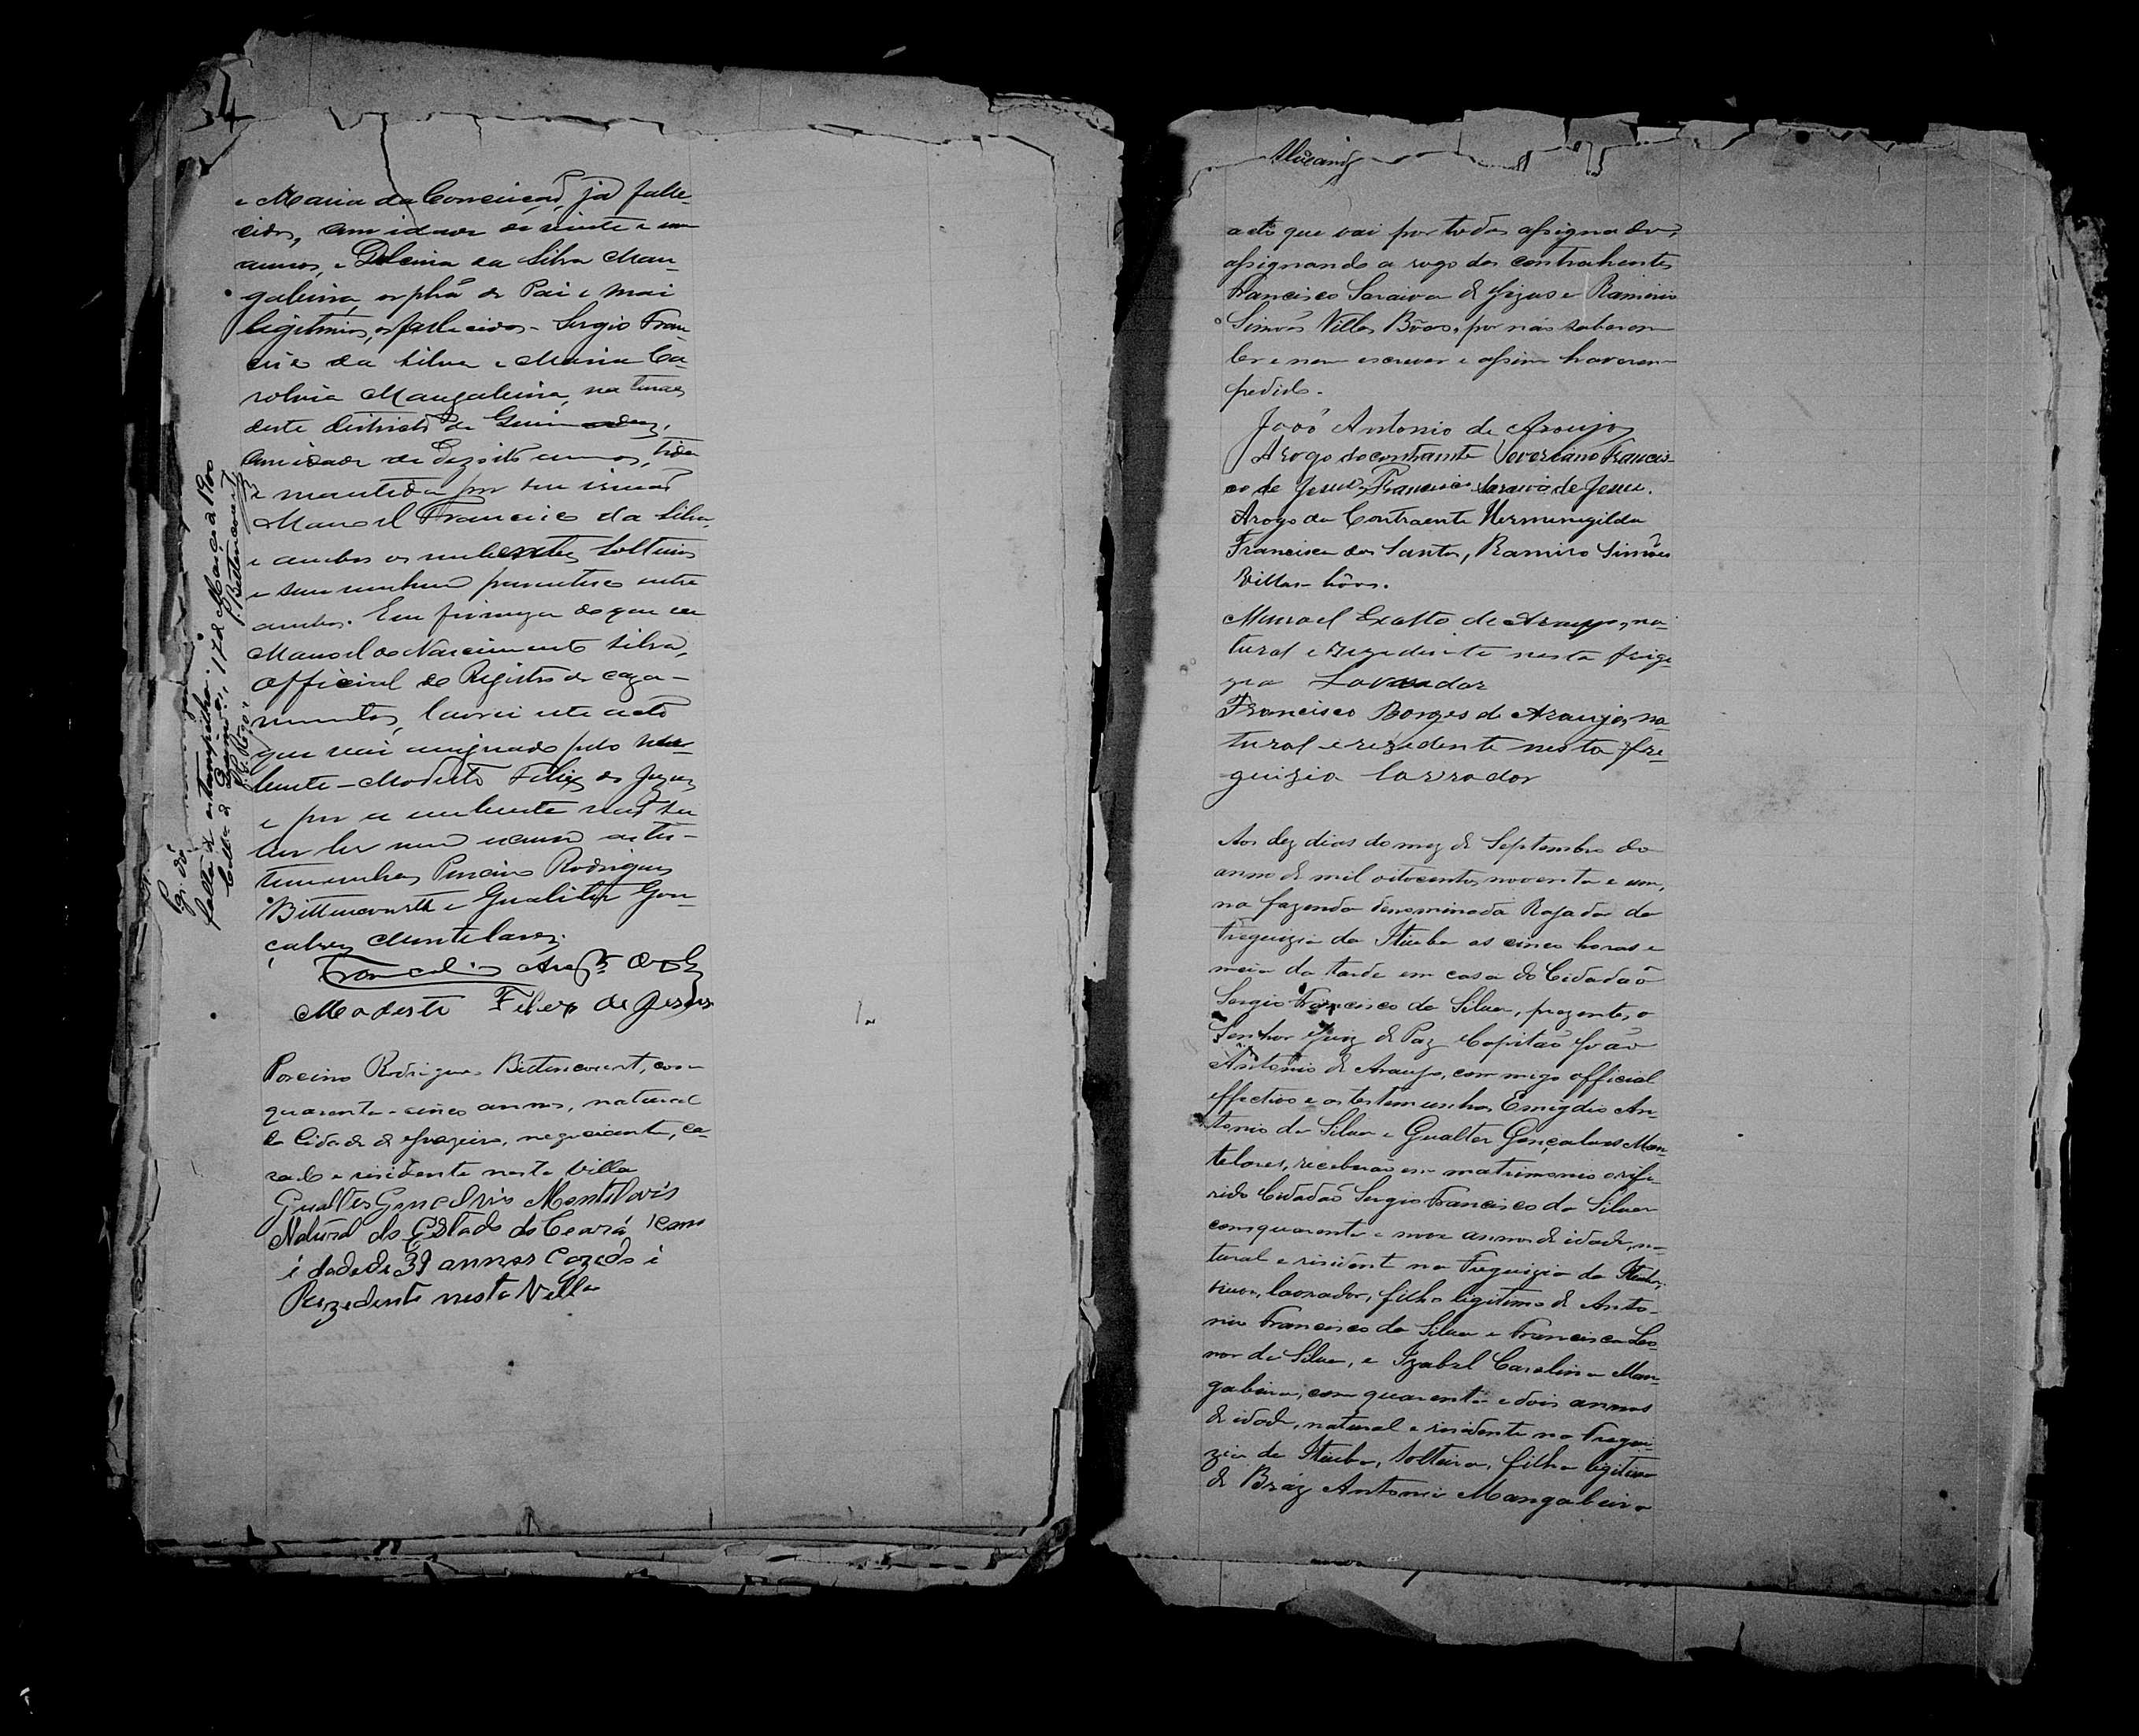 34
e Maria da Conceicaõ, já falle-
cidos, com idade de vinte e um
annos, e Dulcina da Silva Man-
gabeira, orphã de Pai e mai
legitimos, os fallecidos - Sergio Fran-
cisco da Silva e Maria Ca-
rolina Mangabeira, naturaes
deste districto de
com idade de dezoito annos, tida
e mantida por seu irmaõ
Manoel Francisco da Silva,
e ambos os nubentes solteiros
e sem nenhum parentesco entre
ambos. Em firmeza do que eu
Manoel do Nascimento Silva,
Official do Registro de caza-
mentos, lavrei este acto
que vai assignado pelo nu-
bente - Modesto Felix de Jezus
e por a nubente naõ sa-
ber ler nem escrever as tes-
temunhas Porcino Rodrigues
Bittencourt e Gualter Gon-
çalves Montelares.
Modesto Felix de Jesus
Porcino Rodrigues Bittencourt, com
quarenta e cinco annos, natural
da Cidade de Joazeiro, negociante, ca-
zado e residente nesta Villa
Gualter Goncalves Montelares
Natural do Estado do Ceará com
idade de 39 annos Cazado i
Rezedente nesta Villa
falta de estampilha.
17 de Março de 1900
Bittencourt
acto que vai por todos assignados,
assignando a rogo dos contrahentes
Francisco Saraiva de Jezus e Ramiro
Simões Villas Bôas, por não saberem
ler e nem escrever e assim haverem
pedido.
João Antonio de Araujo
A rogo do contraente Severiano Francis-
co de Jesus, Francisco Saraiva de Jesus.
Arogo da Contraente Hermenegilda
Francisca dos Santos, Ramiro Simões
Villas-bôas.
Manoel Exalto de Araujo, na-
tural e rezediente nesta freige
zia Lavrador
Francisco Borges de Araujo, na
tural e rezedente nesta fre-
guizia lavrador
Aos dez dias do mez de Septembro do
anno de mil oitocentos noventa e um,
na fazenda denominada Rajada da
freguizia da Itiuba as cinco horas e
meia da tarde em casa do Cidadaõ
Sergio Francisco da Silva, prezentes, o
Senhor Juiz de Paz Capitaõ João
Antonio de Araujo, commigo official
effectivo e as testemunhas Emigdio An-
tonio da Silva e Gualter Gonçalves Mon-
telares, receberão em matrimonio o refe-
rido Cidadaõ Sergio Francisco da Silva
com quarenta e nove annos de idade, na-
tural e resident na Freguizia da Itiuba,
viuvo, lavrador, filho legitimo de Anto-
nio Francisco da Silva e Francisca Leo
nor da Silva, e Izabel Carolina Man-
gabeira, com quarenta e dois annos
de idade, natural e residente na Fregui-
zia da Itiuba, solteira, filha legitima
de Bráz Antonio Mangabeira